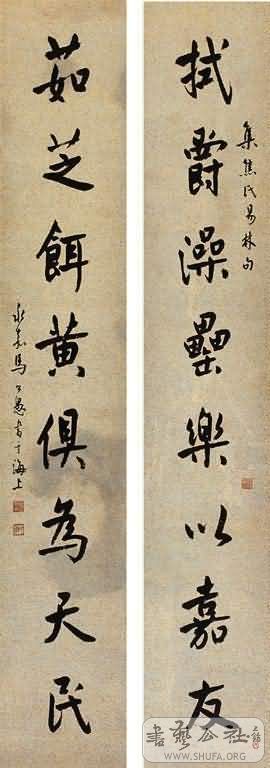 集焦氏易林句
拭爵澡罍樂以嘉友
茹芝餌黃俱為天民
永嘉馬公愚書于海上
書藝公社
WWW.SHUFA.ORG